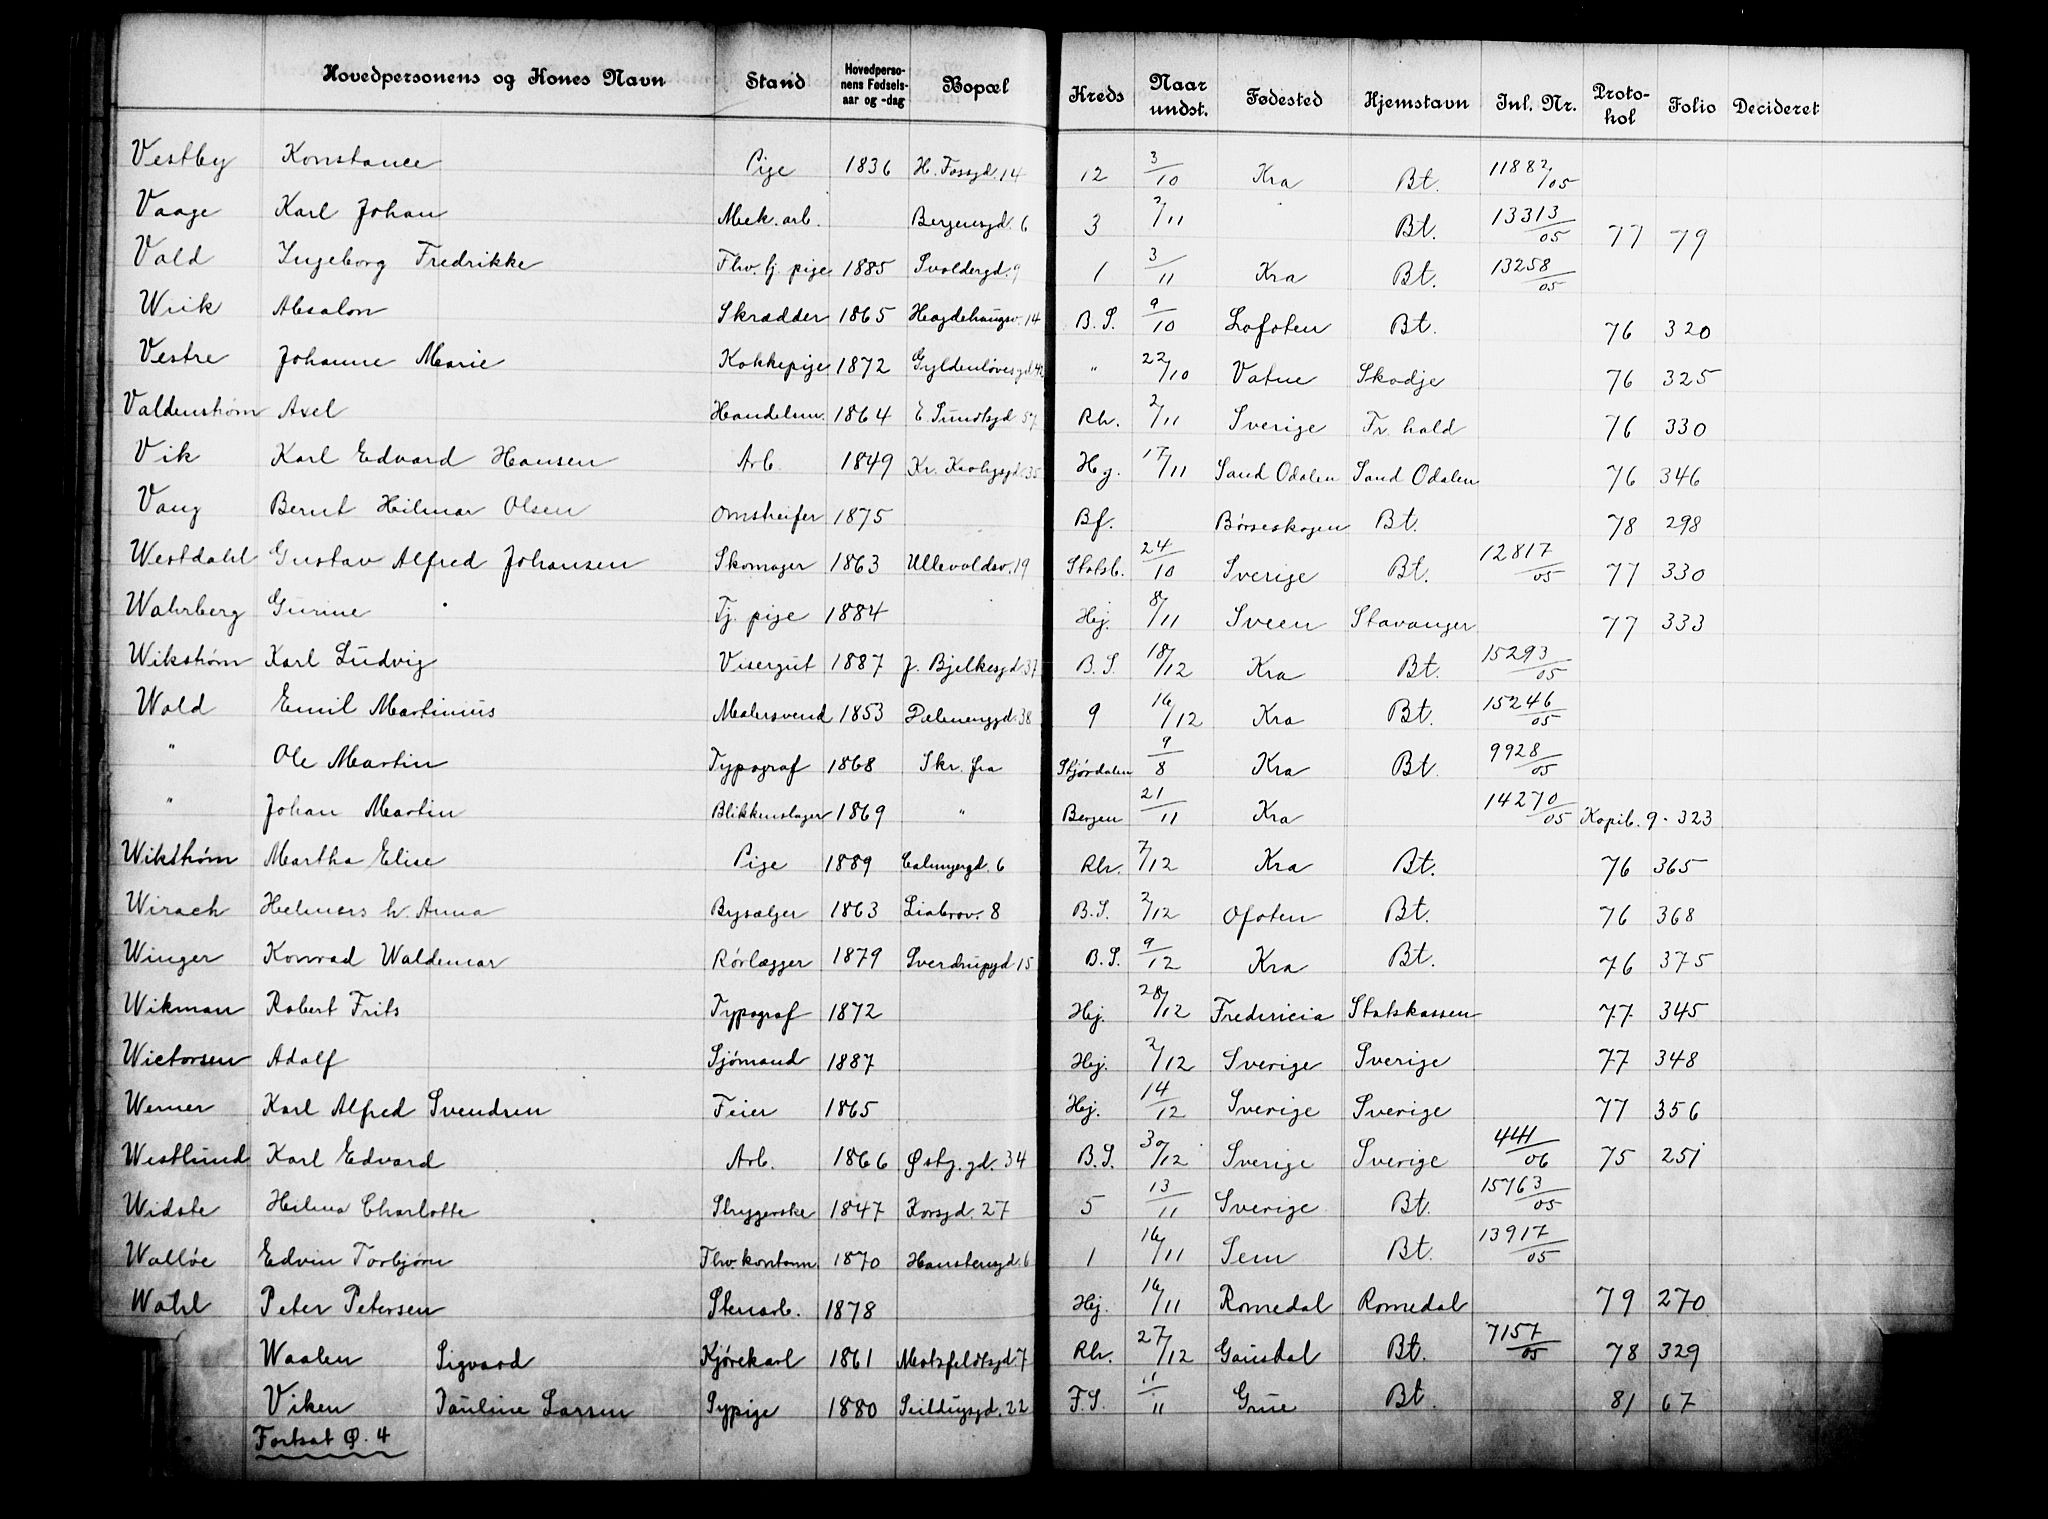 Hovedpersonens og Kones Navn | Stand | Hovedpersonens Fødselsaar og -dag | Bopæl | Kreds | Naar undst. | Fødested | Hjemstavn | Inl. Nr. | Protokol | Folio | Decideret
Vestby Konstance Pige 1836 H. Fossgd. 14 12 3/10 Kra Bt. 11882/05
Vaage Karl Johan Mek. arb. Bergensgd. 6 3 2/11 Bt. 13313/05 77 79
Vald Ingeborg Fredrikke Fhv. tj. pige 1885 Svoldergd. 9 1 3/11 Kra Bt. 13258/05
Wiik Absalon Skrædder 1865 Hægdehaugsv. 14 B. S. 9/10 Lofoten Bt. 76 320
Vestre Johanne Marie Kokkepige 1872 Gyldenløvesgd. 42 " 22/10 Vatne Skodje 76 325
Valdenstrøm Axel Handelsm. 1864 E. Sundtsgd. 57 Rh. 2/11 Sverige Fr. hald 76 330
Vik Karl Edvard Hansen Arb. 1849 Kr. Krohgsgd. 35 Hg. 17/11 Sand Odalen Sand Odalen 76 346
Vang Bernt Hilmar Olsen Omstreifer 1875 Bf. Børseskogen Bt. 78 298
Westdahl Gustav Alfred Johansen Skomager 1863 Ullevoldsv. 19 Statsb. 24/10 Sverige Bt. 12817/05 77 330
Wahrberg Gurine Tj. pige 1884 Hej. 8/11 Sveen Stavanger 77 333
Wikstrøm Karl Ludvig Visergut 1887 J. Bjelkesgd. 37 B. S. 18/12 Kra Bt. 15293/05
Wold Emil Martinius Malersvend 1853 9 16/12 Kra Bt. 15246/05
" Ole Martin Typograf 1868 Skr. fra Stjørdalen 9/8 Kra Bt. 9928/05
" Johan Martin Blikkenslager 1869 " Bergen 21/11 Kra 14270/05 Kopib. 9 - 323
Wikstrøm Martha Elise Pige 1889 Calmeyergd. 6 Rh. 7/12 Kra Bt. 76 365
Wirach Helmers h. Anna Bysælger 1863 Liabrov. 8 B. S. 2/12 Ofoten Bt. 76 368
Winger Konrad Waldemar Rørlægger 1879 Sverdrupgd 15 B. S. 9/12 Kra Bt. 76 375
Wikman Robert Frits Typograf 1872 Hej. 28/12 Fredericia Statskassen 77 345
Wictorsen Adolf Sjømand 1887 Hej. 2/12 Sverige Sverige 77 348
Werner Karl Alfred Svendsen Feier 1865 Hej. 14/12 Sverige Sverige 77 356
Westlund Karl Edvard Arb. 1866 Østg. gd. 34 B. S. 30/12 Sverige Sverige 441/06 75 251
Widste Hilma Charlotte Strygerske 1847 Korsgd. 27 5 13/11 Sverige Bt. 15763/05
Walløe Edvin Torbjørn Fhv. kontorm. 1870 Hanstensgd. 6 1 16/11 Sem Bt. 13917/05
Wahl Peter Petersen Stenarb. 1878 Hej. 16/11 Romedal Romedal 79 270
Waalen Sigvard Kjørekarl 1861 Motzfeldtsgd. 7 Rh. 27/12 Gausdal Bt. 7157/05 78 329
Viken Pauline Larsen Sypige 1880 Seildugsgd. 22 F. S. 11/11 Grue Bt. 81 67
Fortsat Q. 4